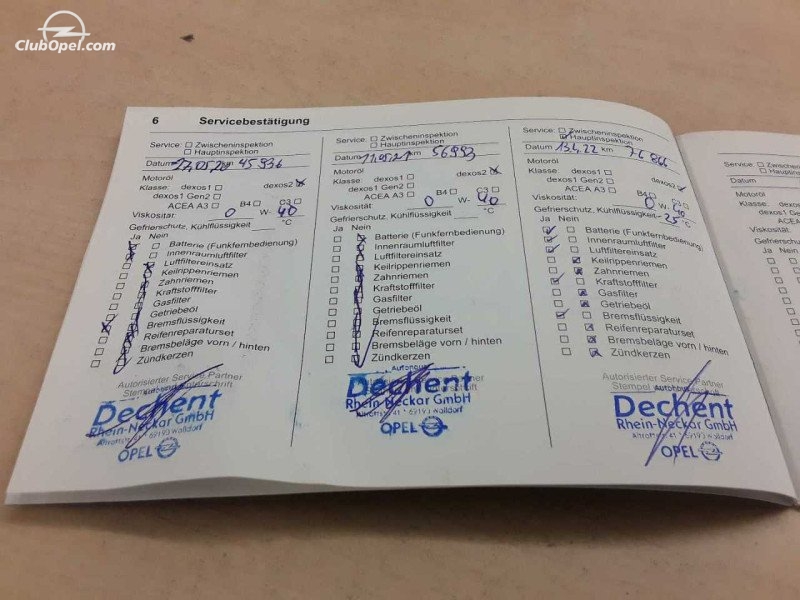 ClubOpel.com
6 Servicebestätigung
Service: Zwischeninspektion
Hauptinspektion
Datum km 45 936
Motoröl
Klasse: dexos1 dexos2
dexos1 Gen2
ACEA A3 B4 C3
Viskosität: 0 W- 40
Gefrierschutz, Kühlflüssigkeit °C
Ja Nein
Batterie (Funkfernbedienung)
Innenraumluftfilter
Luftfiltereinsatz
Keilrippenriemen
Zahnriemen
Kraftstofffilter
Gasfilter
Getriebeöl
Bremsflüssigkeit
Reifenreparaturset
Bremsbeläge vorn / hinten
Zündkerzen
Autorisierter Service Partner
Dechent
Rhein-Neckar GmbH
Altrottstr. 41 * 69190 Walldorf
OPEL
Service: Zwischeninspektion
Hauptinspektion
Datum km 56993
Motoröl
Klasse: dexos1 dexos2
dexos1 Gen2
ACEA A3 B4 C3
Viskosität: 0 W- 40
Gefrierschutz, Kühlflüssigkeit °C
Ja Nein
Batterie (Funkfernbedienung)
Innenraumluftfilter
Luftfiltereinsatz
Keilrippenriemen
Zahnriemen
Kraftstofffilter
Gasfilter
Getriebeöl
Bremsflüssigkeit
Reifenreparaturset
Bremsbeläge vorn / hinten
Zündkerzen
Autohaus
Dechent
Rhein-Neckar GmbH
Altrottstr. 41 * 69190 Walldorf
OPEL
Service: Zwischeninspektion
Hauptinspektion
Datum 13.4.22 km 76 866
Motoröl
Klasse: dexos1 dexos2
dexos1 Gen2
ACEA A3 B4 C3
Viskosität: 0 W- 40
Gefrierschutz, Kühlflüssigkeit -25 °C
Ja Nein
Batterie (Funkfernbedienung)
Innenraumluftfilter
Luftfiltereinsatz
Keilrippenriemen
Zahnriemen
Kraftstofffilter
Gasfilter
Getriebeöl
Bremsflüssigkeit
Reifenreparaturset
Bremsbeläge vorn / hinten
Zündkerzen
Autorisierter Service Partner
Stempel Autohaus
Dechent
Rhein-Neckar GmbH
Altrottstr. 41 * 69190 Walldorf
OPEL
Service: Zw
Ha
Datum
Motoröl
Klasse: dexos
dexos1 Ge
ACEA
Viskosität:
Gefrierschutz
Ja Nein